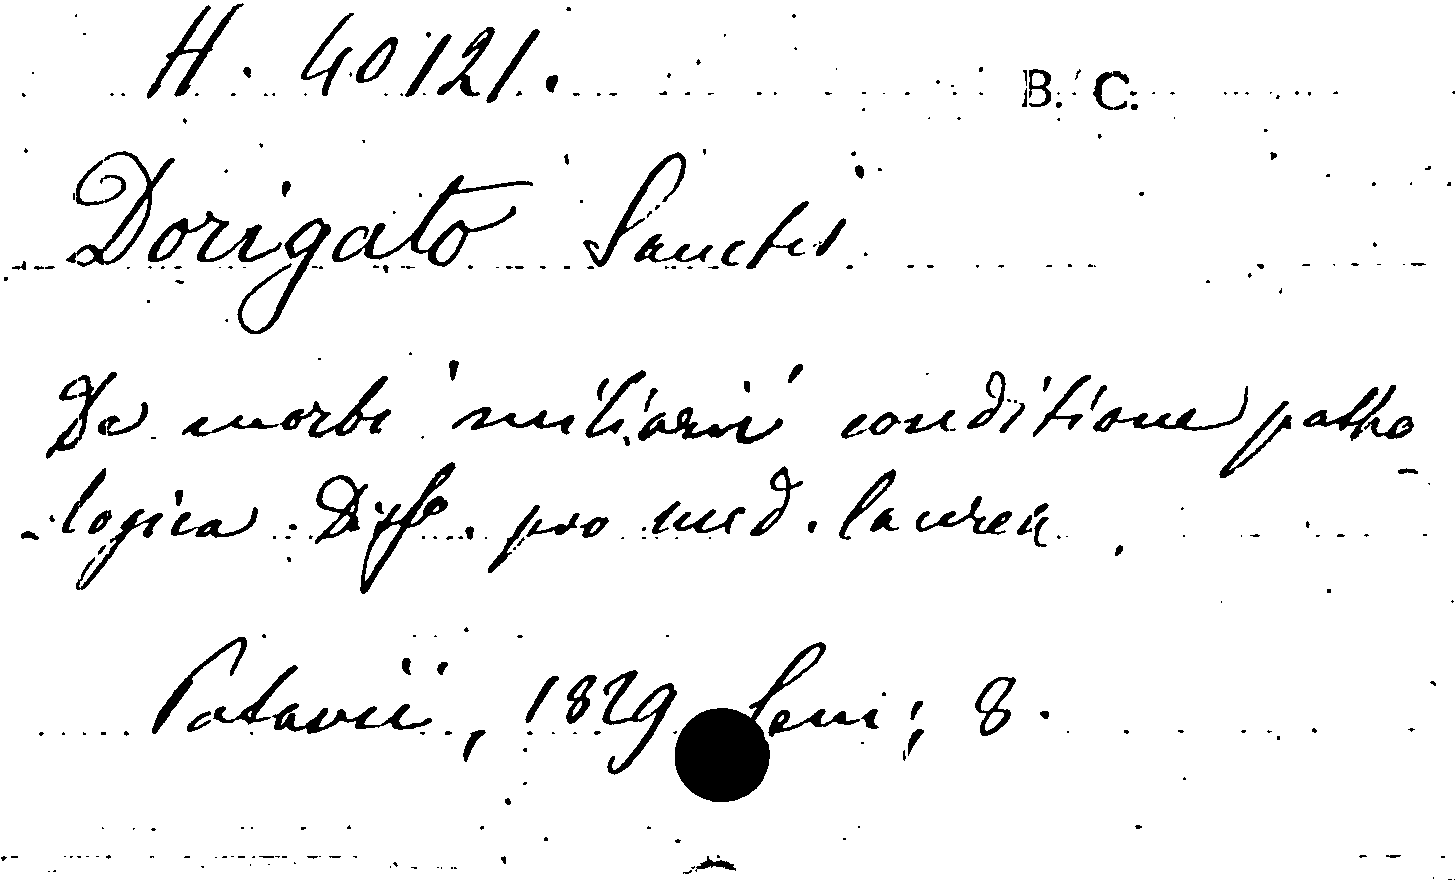 H. 40121.
B. C.
Dorigato Sanctis
De morbi miliarii conditione patho-
-logica. Diss. pro med. laurea.
Patavii, 1829 Semi; 8.